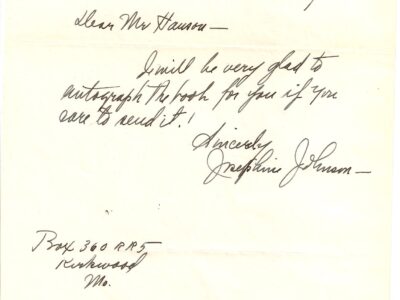 Dear Mr Hanson —
I will be very glad to
autograph the book for you if you
care to send it!
Sincerely
Josephine Johnson —
Box 360 RR5
Kirkwood
Mo.